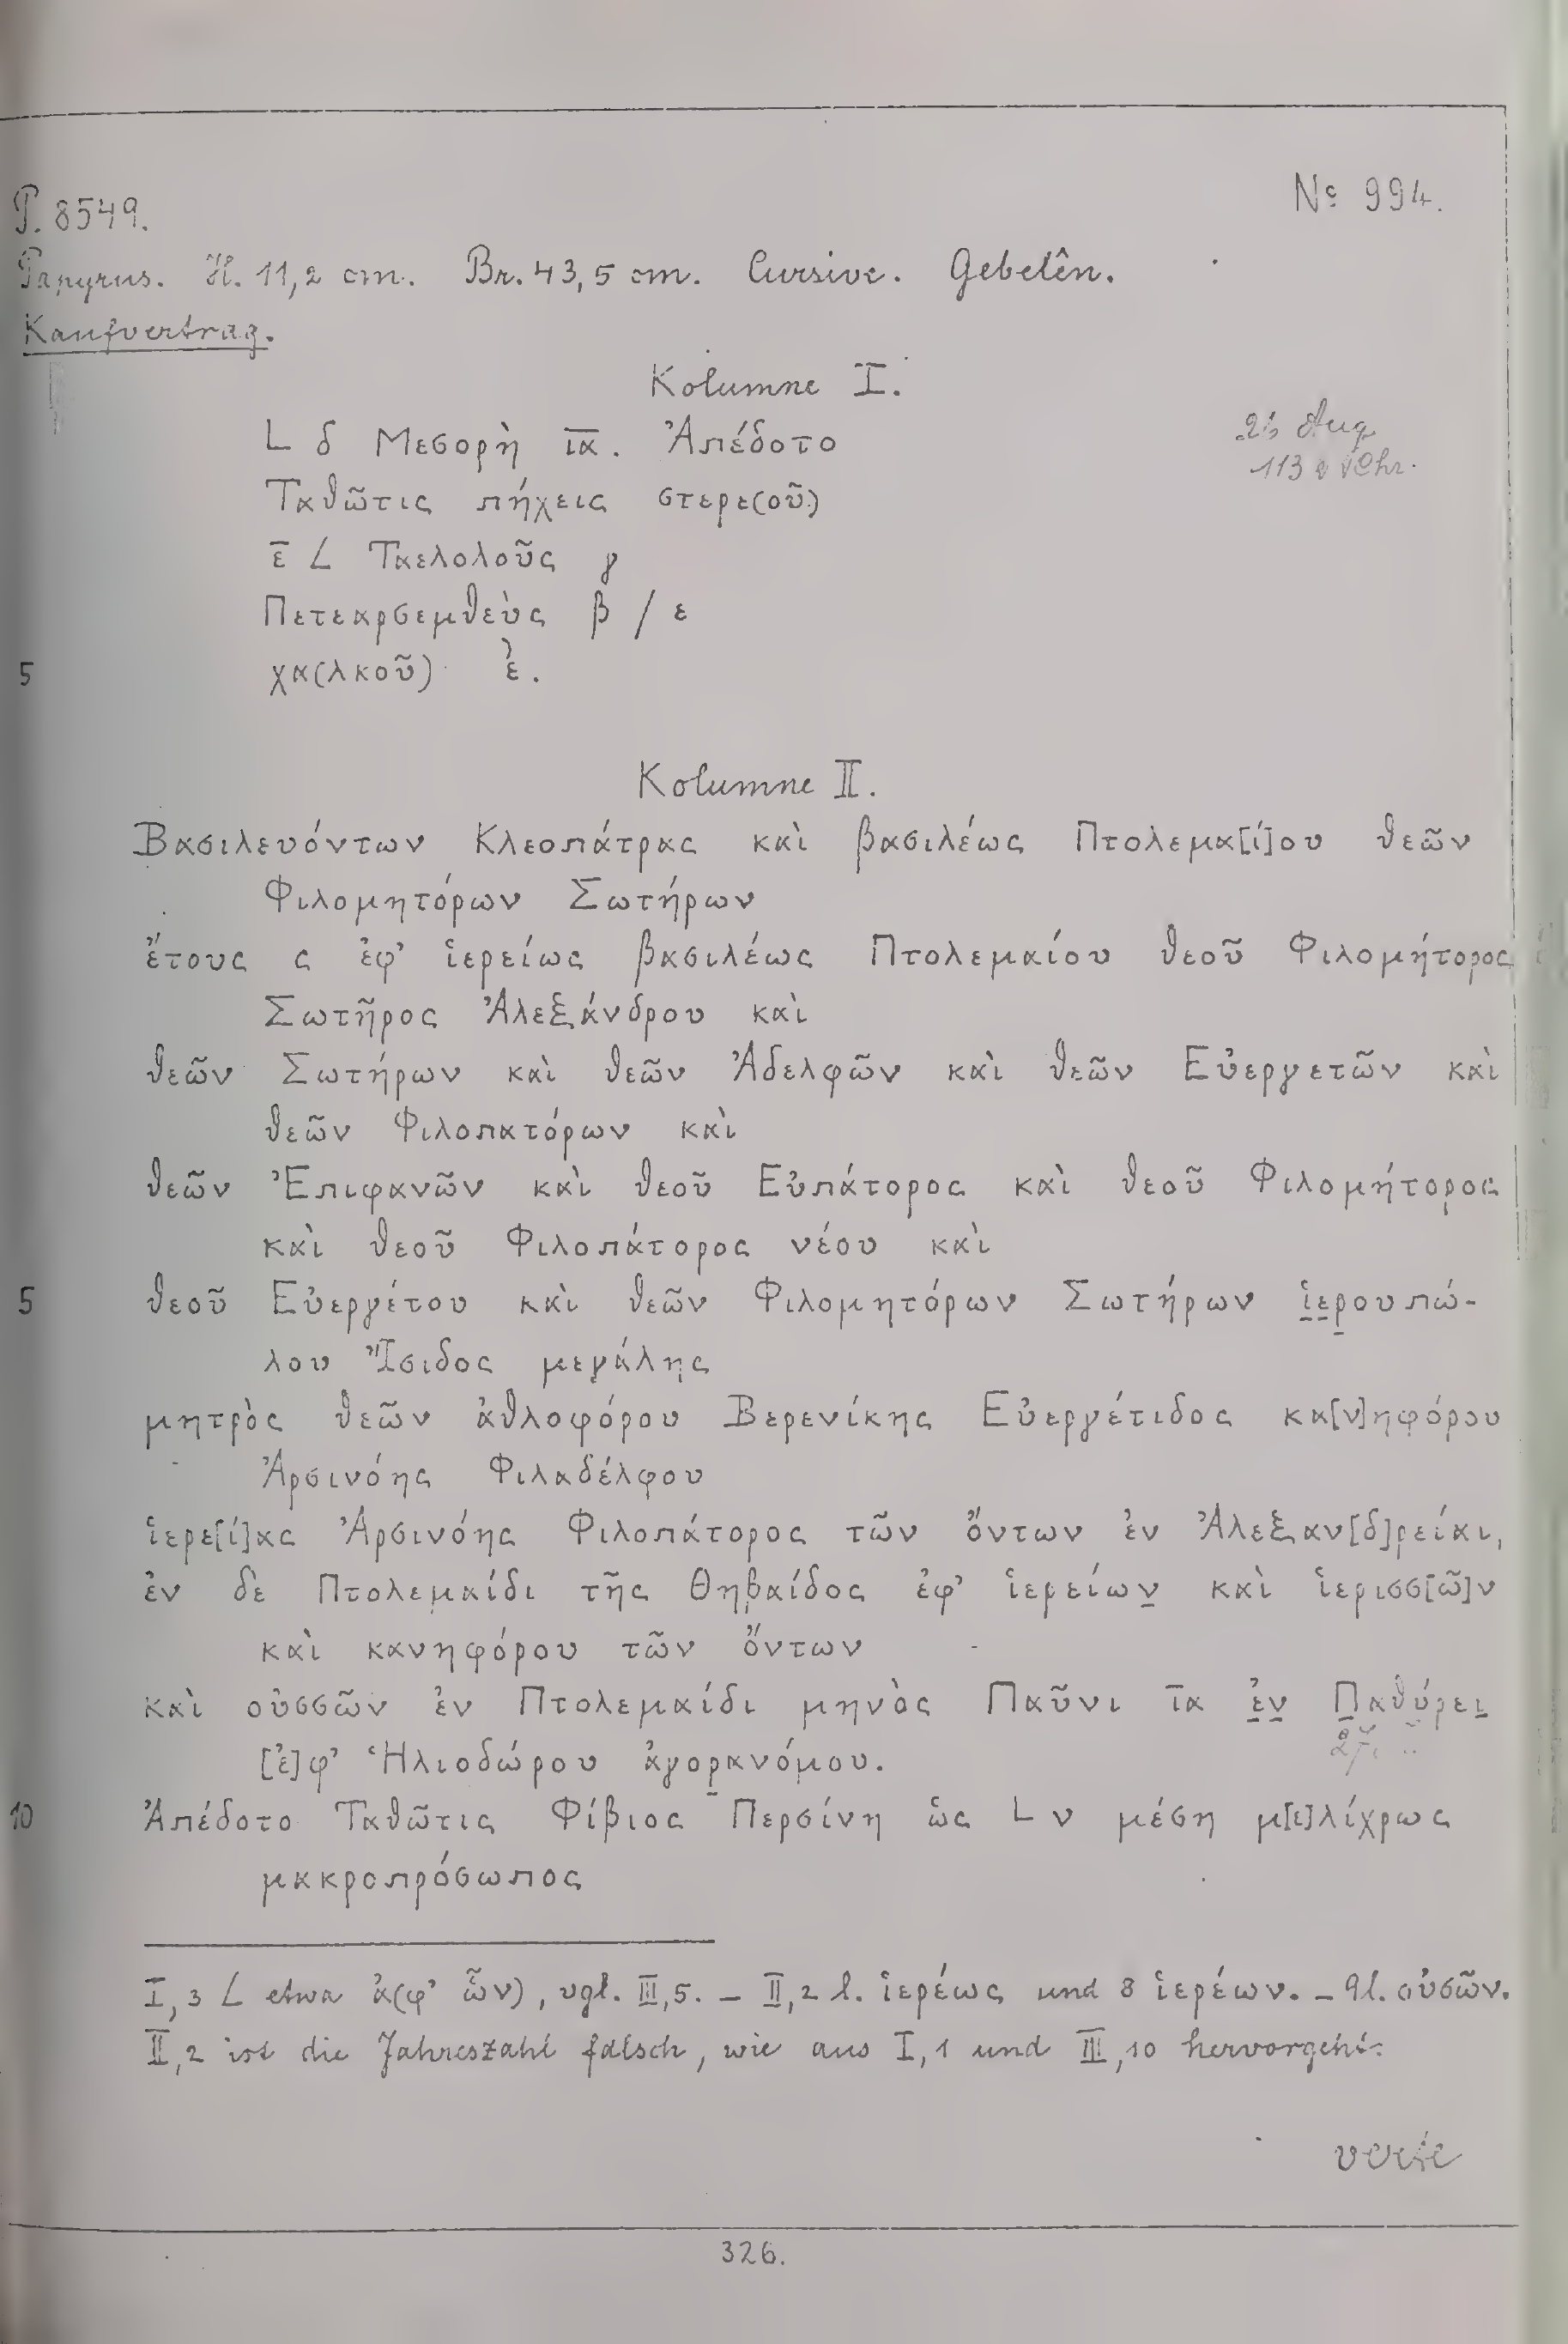 P. 8549.
No 994.
Papyrus. H. 11,2 cm. Br. 43,5 cm. Cursive. Gebelên.
Kaufvertrag.
Kolumne I.
L δ Μεσορὴ ῑᾱ. Ἀπέδοτο
26 Aug
Ταθῶτις πήχεις στερε(οῦ)
113 v. Chr.
ε̄ ∠ Ταελολοῦς γ
Πετεαρσεμθεὺς β / ε
5 χα(λκοῦ) ἑ.
Kolumne II.
Βασιλευόντων Κλεοπάτρας καὶ βασιλέως Πτολεμα[ί]ου θεῶν
Φιλομητόρων Σωτήρων
ἔτους ς ἐφ' ἱερείως βασιλέως Πτολεμαίου θεοῦ Φιλομήτορος
Σωτῆρος Ἀλεξάνδρου καὶ
θεῶν Σωτήρων καὶ θεῶν Ἀδελφῶν καὶ θεῶν Εὐεργετῶν καὶ
θεῶν Φιλοπατόρων καὶ
θεῶν Ἐπιφανῶν καὶ θεοῦ Εὐπάτορος καὶ θεοῦ Φιλομήτορος
καὶ θεοῦ Φιλοπάτορος νέου καὶ
5 θεοῦ Εὐεργέτου καὶ θεῶν Φιλομητόρων Σωτήρων ἱ̣ε̣ρ̣ουπώ-
λου Ἴσιδος μεγάλης
μητρὸς θεῶν ἀθλοφόρου Βερενίκης Εὐεργέτιδος κα[ν]ηφόρου
Ἀρσινόης Φιλαδέλφου
ἱερε[ί]ας Ἀρσινόης Φιλοπάτορος τῶν ὄντων ἐν Ἀλεξαν[δ]ρείαι,
ἐν δε Πτολεμαίδι τῆς Θηβαίδος ἐφ' ἱερείων̣ καὶ ἱερισσ[ῶ]ν
καὶ κανηφόρου τῶν ὄντων
καὶ οὐσσῶν ἐν Πτολεμαίδι μηνὸς Παῦνι ῑᾱ ἐ̣ν̣ Π̣αθύρει̣
[ἐ]φ' Ἡλιοδώρου ἀγορ̣ανόμου.
10 Ἀπέδοτο Ταθῶτις Φίβιος Περσίνη ὡς L ν μέση μ[ε]λίχρως
μακροπρόσωπος
I, 3 ∠ etwa ἀ(φ' ὧν), vgl. III, 5. – II, 2 l. ἱερέως und 8 ἱερέων. – 9 l. οὐσῶν.
II, 2 ist die Jahreszahl falsch, wie aus I, 1 und III, 10 hervorgeht.
verte
326.